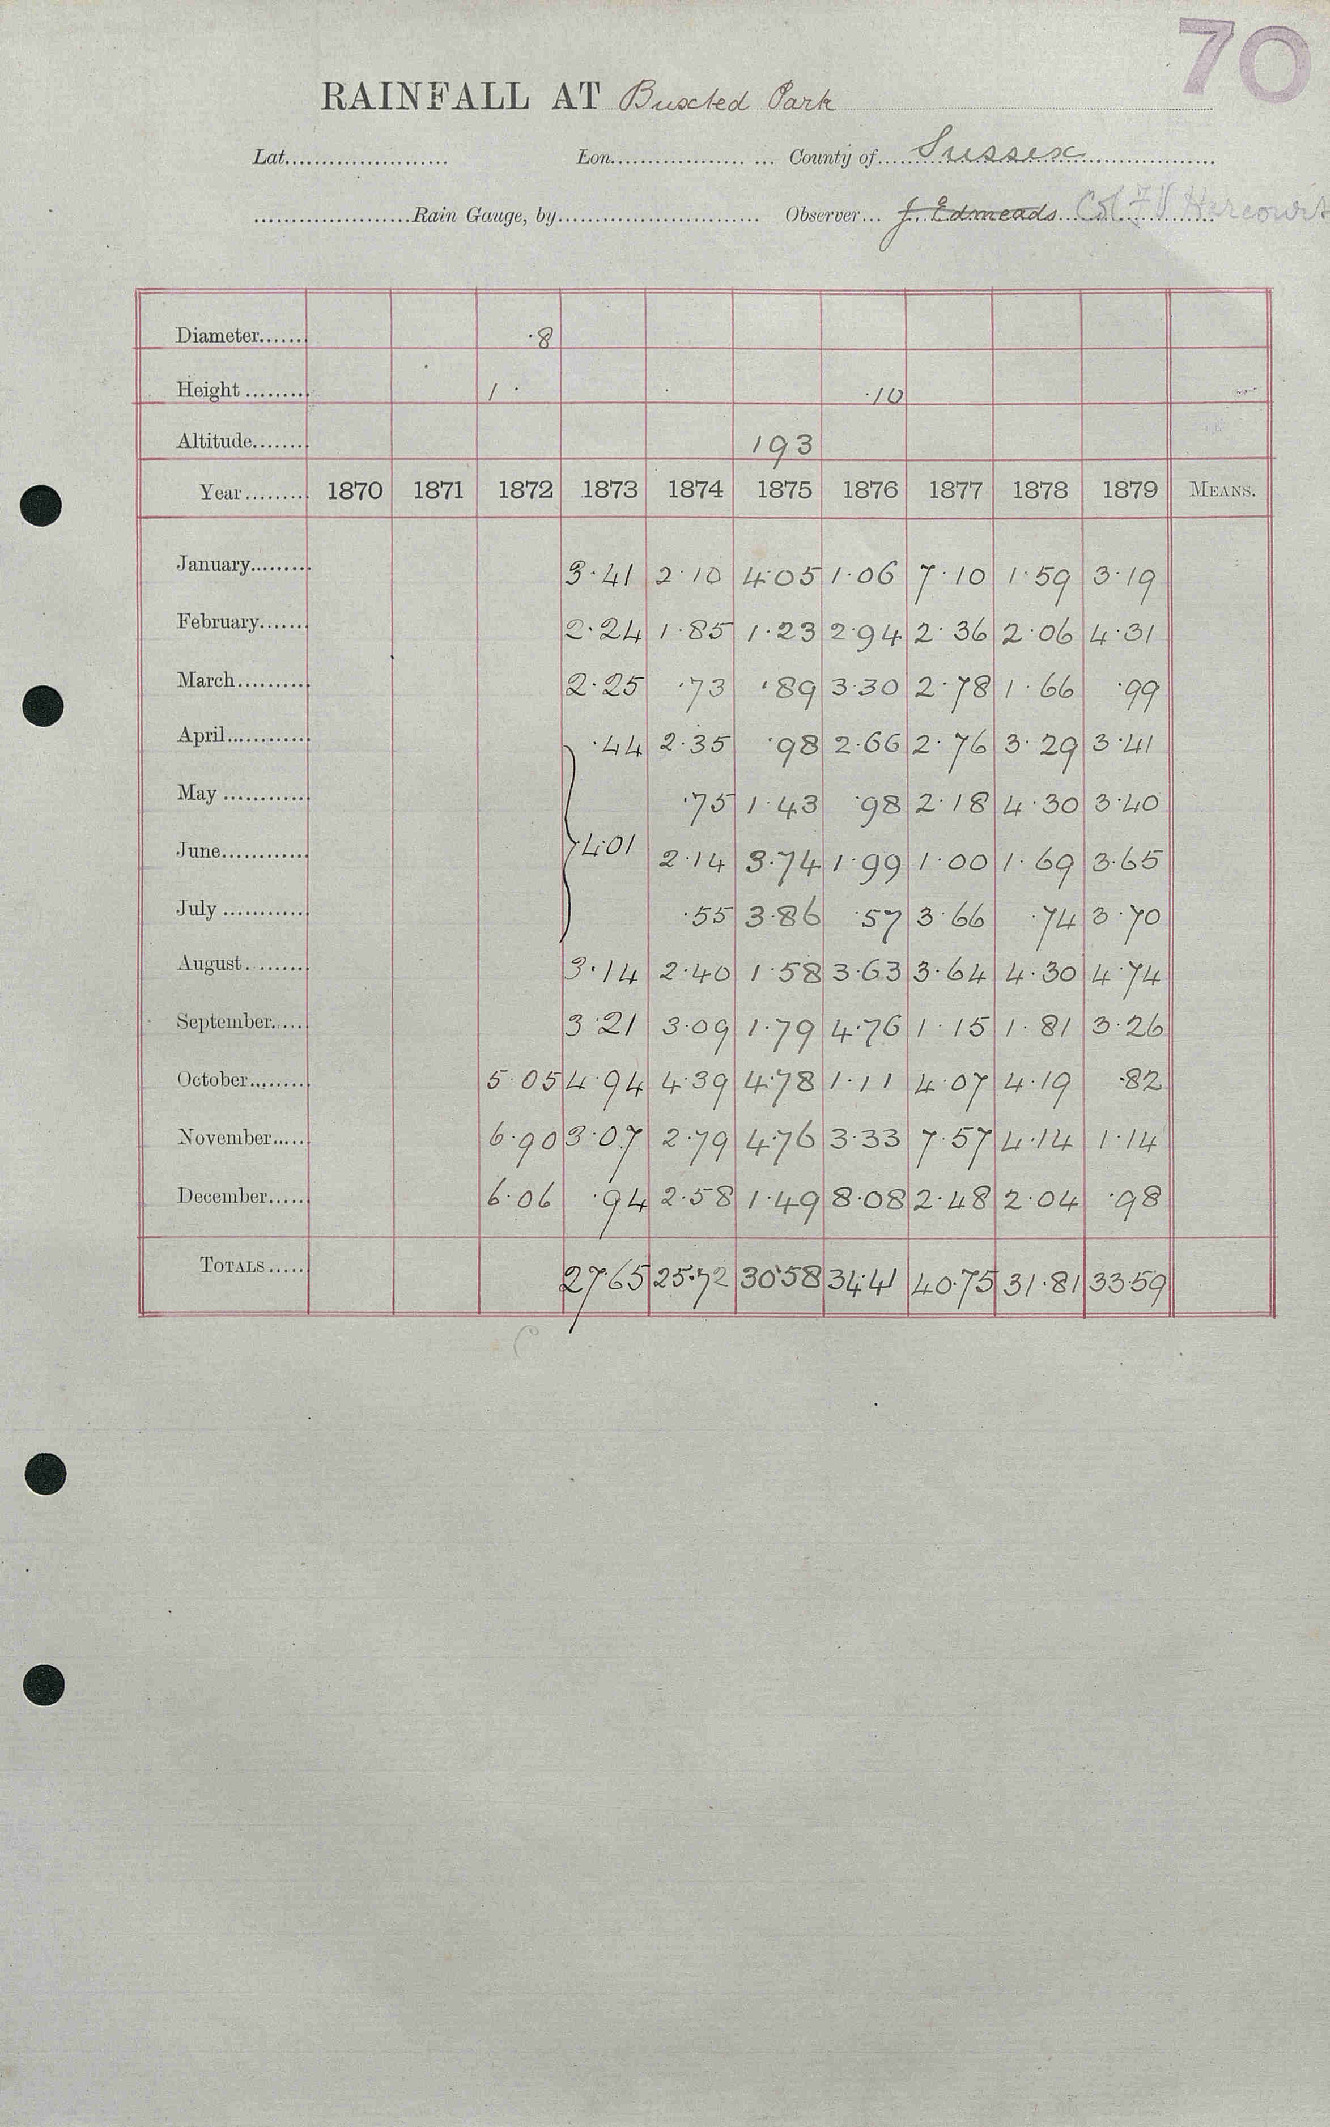 70
RAINFALL AT Buxted Park
Lat. Lon. County of Sussex
Rain Gauge, by Observer J. Edmeads Col F V Harcourt
Diameter ·8
Height 1 · ·10
Altitude 193
Year 1870 1871 1872 1873 1874 1875 1876 1877 1878 1879 MEANS.
January 3·41 2·10 4·05 1·06 7·10 1·59 3·19
February 2·24 1·85 1·23 2·94 2·36 2·06 4·31
March 2·25 ·73 ·89 3·30 2·78 1·66 ·99
April ·44 2·35 ·98 2·66 2·76 3·29 3·41
May ·75 1·43 ·98 2·18 4·30 3·40
June 4·01 2·14 3·74 1·99 1·00 1·69 3·65
July ·55 3·86 ·57 3·66 ·74 3·70
August 3·14 2·40 1·58 3·63 3·64 4·30 4·74
September 3·21 3·09 1·79 4·76 1·15 1·81 3·26
October 5·05 4·94 4·39 4·78 1·11 4·07 4·19 ·82
November 6·90 3·07 2·79 4·76 3·33 7·57 4·14 1·14
December 6·06 ·94 2·58 1·49 8·08 2·48 2·04 ·98
TOTALS 27·65 25·72 30·58 34·41 40·75 31·81 33·59